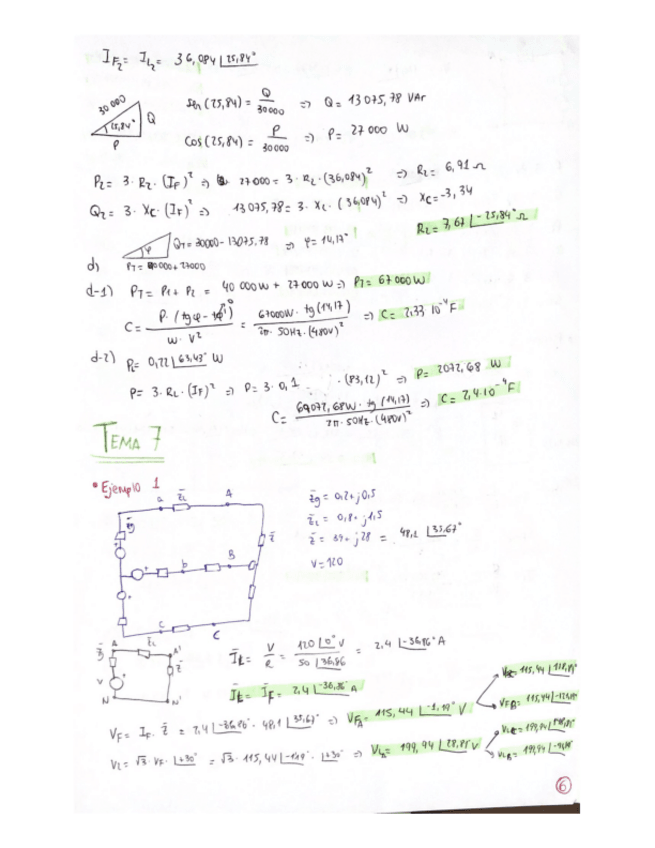 I_F2 = I_L2 = 36,084 ∠25,84°
30000
25,84°
Q
P
sen(25,84) = Q/30000 => Q = 13075,78 VAr
Cos(25,84) = P/30000 => P = 27000 W
P2 = 3· R2 · (I_F)² => 27000 = 3· R2 · (36,084)² => R2 = 6,91 Ω
Q2 = 3· Xc · (I_F)² => 13075,78 = 3· X2 · (36,084)² => Xc = -3,34
R2 = 7,67 ∠-25,84° Ω
φ
Q_T = 30000 - 13075,78 => φ = 14,17°
d) P_T = 40000 + 27000
d-1) P_T = P1 + P2 = 40000W + 27000 W => P_T = 67000W
C = P·(tgφ - tgφ')/W·V² = 67000W · tg(14,17)/2π·50Hz·(480V)² => C = 2,33 10⁻⁴ F
d-2) 0,22 ∠63,43° W
P = 3·R_L·(I_F)² => P = 3·0,1 ·(83,12)² => P = 2072,68 W
C = 69072,68W · tg(14,17)/2π·50Hz·(480V)² => C = 2,4·10⁻⁴ F
TEMA 7
• Ejemplo 1
a Z̄_L A
Z̄g
Z̄
b B
c C
Z̄g = 0,2 + j0,5
Z̄_L = 0,8 + j1,5
Z̄ = 39 + j28 = 48,2 ∠35,67°
V = 120
A Z̄_L A'
Z̄
V
N N'
Ī_L = V/R = 120∠0° V/50 ∠36,86 = 2,4 ∠-36,86° A
Ī_L = Ī_F = 2,4 ∠-36,86° A
V_F = I_F · Z̄ = 2,4 ∠-36,86° · 48,1 ∠35,67° => V_FA = 115,44 ∠-1,19° V
V_L = √3 · V_F · ∠+30° = √3 · 115,44 ∠-1,19° · ∠+30° => V_LA = 199,94 ∠28,85 V
⑥